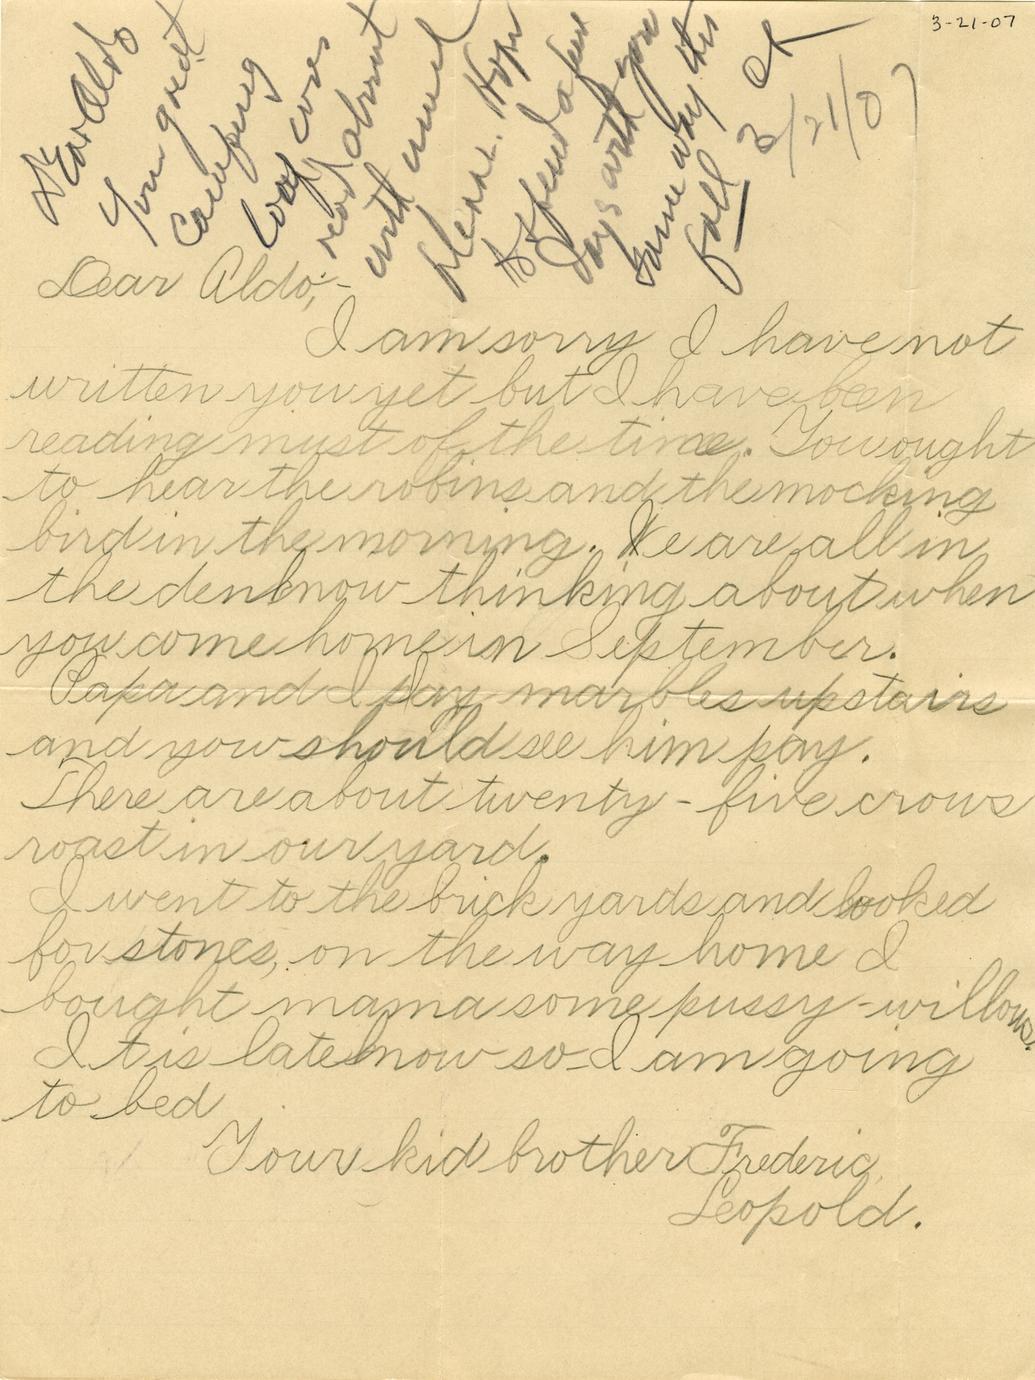 3-21-07
Dear Aldo
Your great
camping
log comes
read about
with much
pleasr. Hope
to spend a few
days with you
same way this
fall
3/21/07
Dear Aldo;-
I am sorry I have not
written you yet but I have been
reading must of the time. You ought
to hear the robins and the mocking
bird in the morning. We are all in
the den now thinking about when
you come home in September.
Papa and I pay marbles upstairs
and you should see him pay.
There are about twenty-five crows
roast in our yard.
I went to the brick yards and looked
for stones, on the way home I
bought mama some pussy-willows.
It is late now so I am going
to bed
Your kid brother Frederic
Leopold.